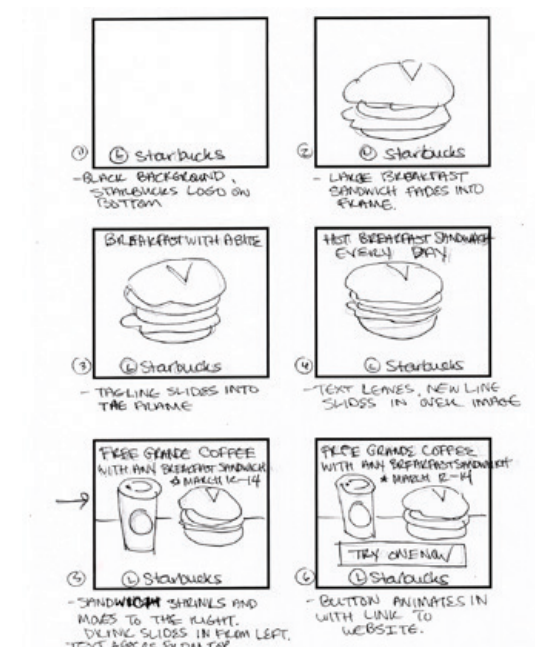 1 L Starbucks
- BLACK BACKGROUND,
STARBUCKS LOGO ON
BOTTOM
2 L Starbucks
- LARGE BREAKFAST
SANDWICH FADES INTO
FRAME.
BREAKFAST WITH A BITE
3 L Starbucks
- TAGLINE SLIDES INTO
THE FRAME
HOT BREAKFAST SANDWICH
EVERY DAY
4 L Starbucks
- TEXT LEAVES, NEW LINE
SLIDES IN OVER IMAGE
FREE GRANDE COFFEE
WITH ANY BREAKFAST SANDWICH
MARCH 12-14
5 L Starbucks
- SANDWICH SHRINKS AND
MOVES TO THE RIGHT.
DRINK SLIDES IN FROM LEFT.
TEXT FROM TOP
FREE GRANDE COFFEE
WITH ANY BREAKFAST SANDWICH
* MARCH 12-14
TRY ONE NOW
6 L Starbucks
- BUTTON ANIMATES IN
WITH LINK TO
WEBSITE.